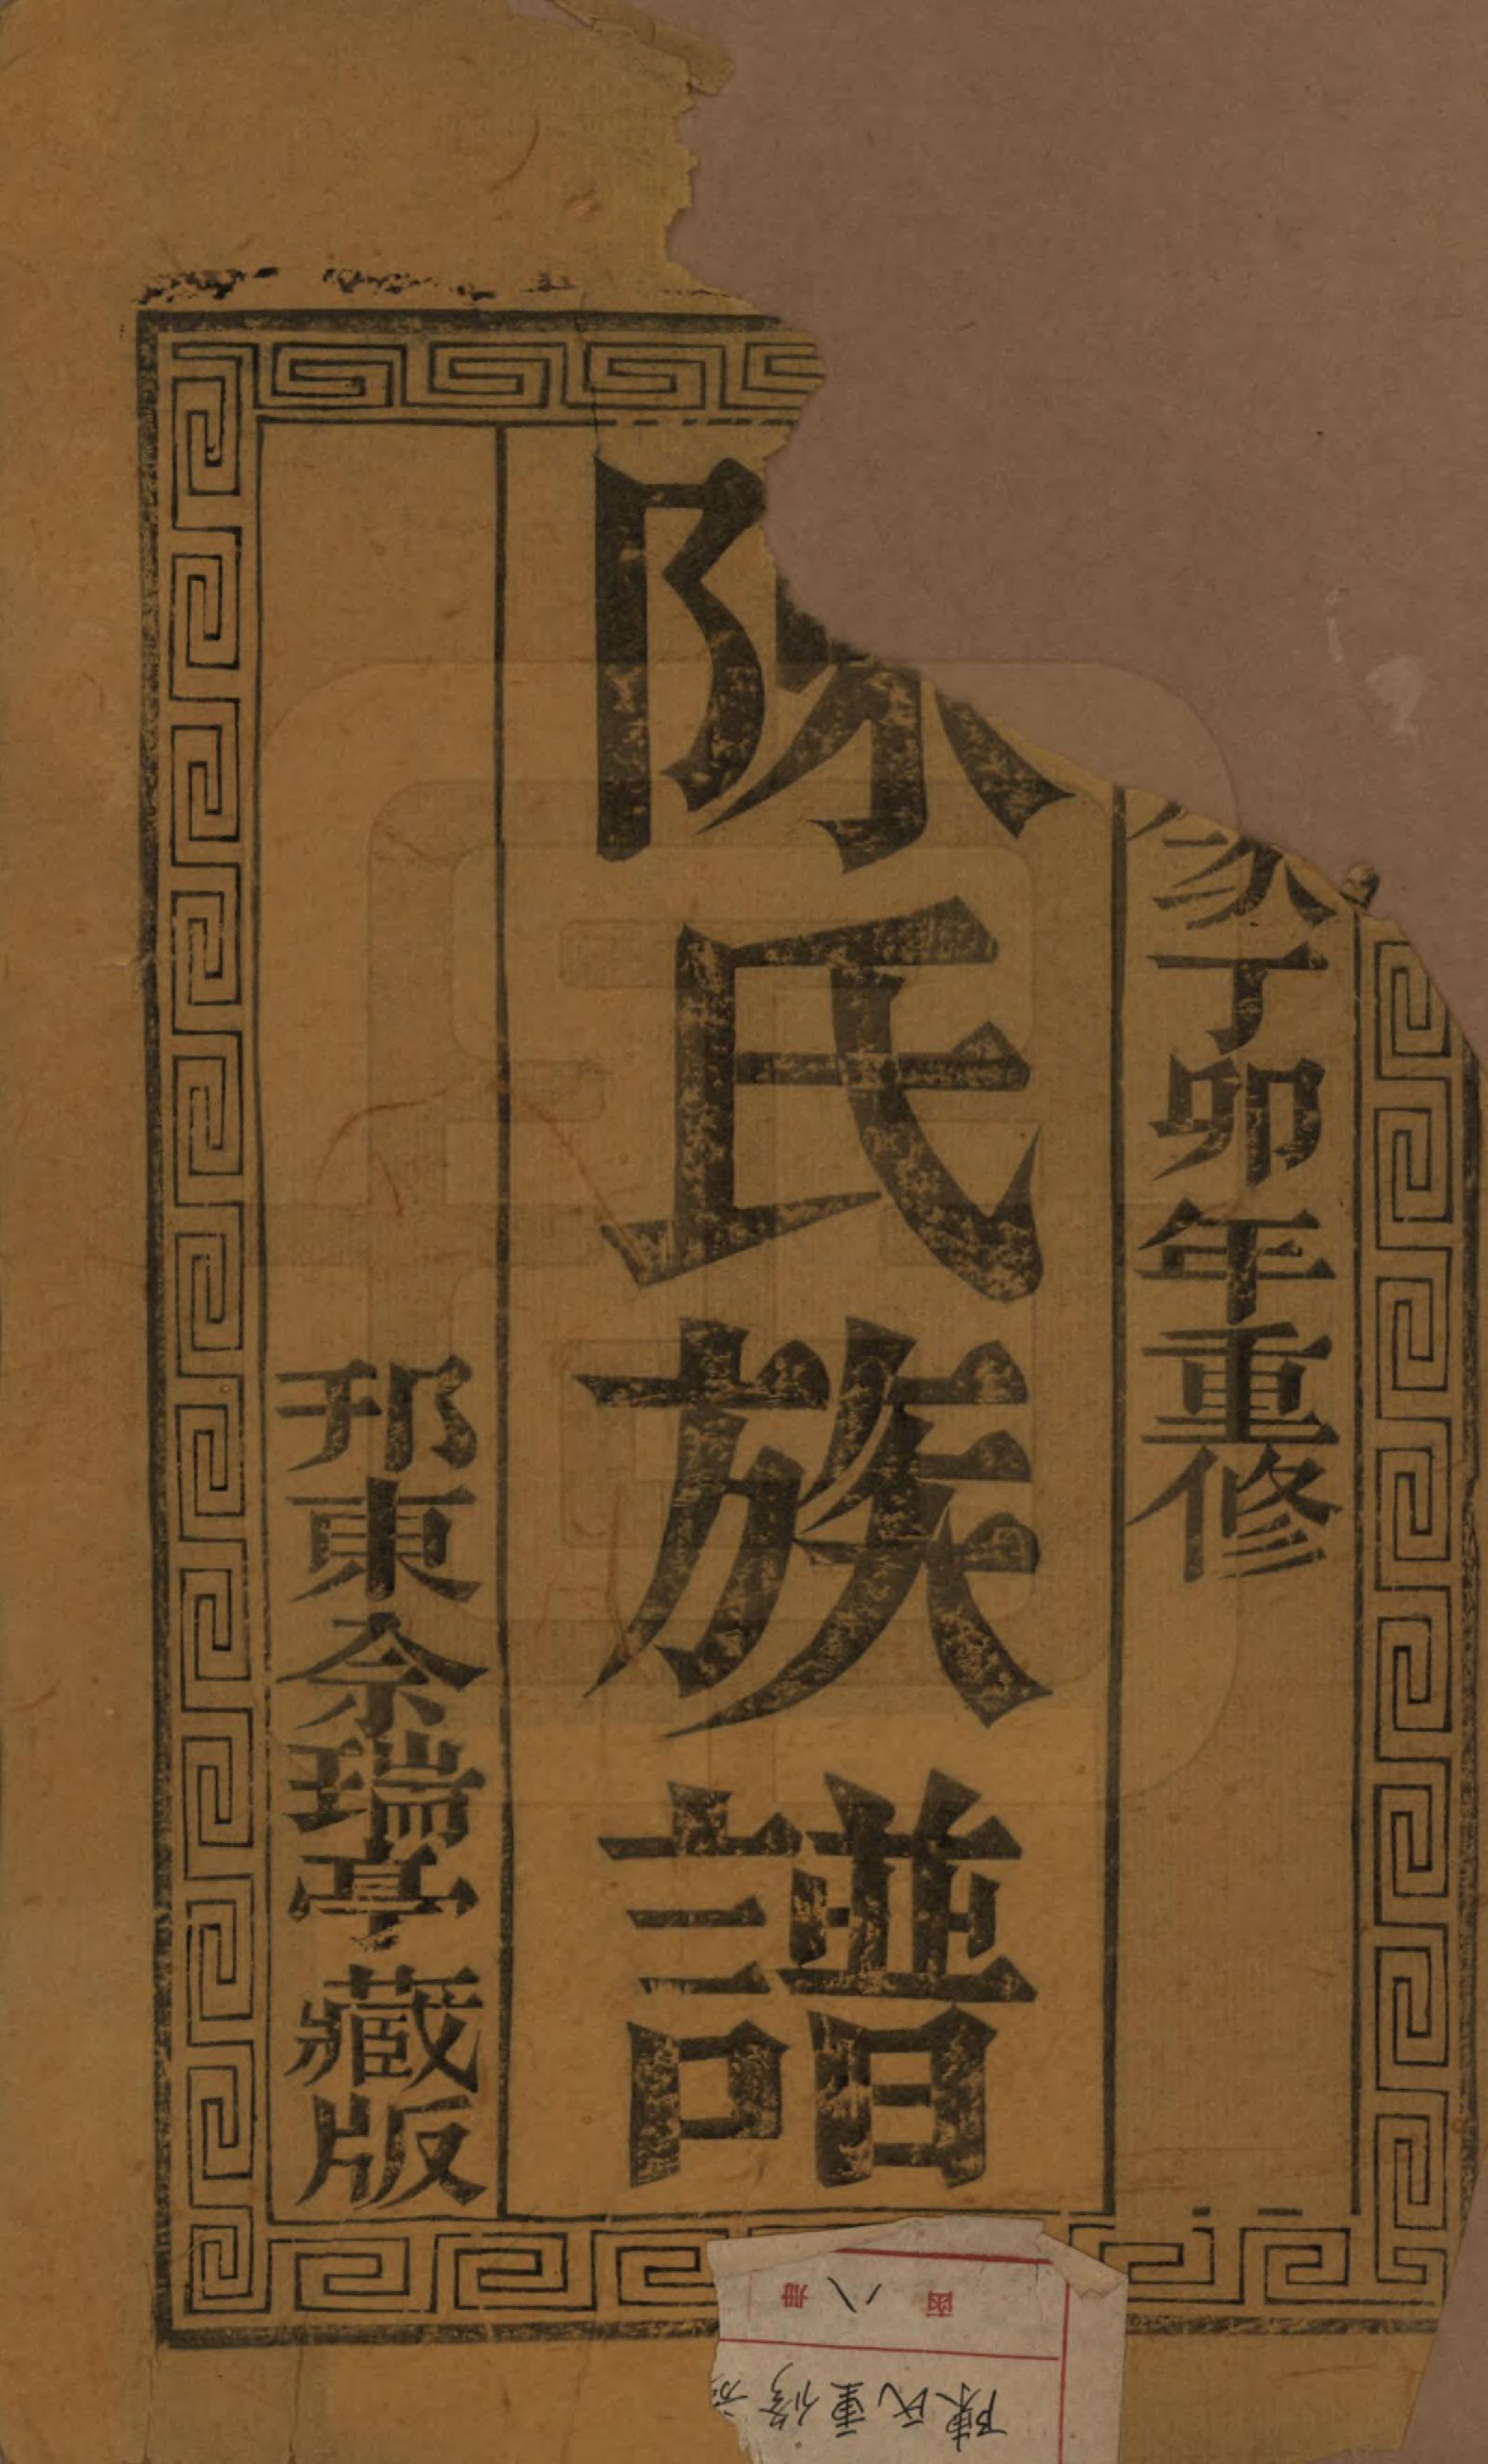 丁卯年重修
陳氏族譜
邗東佘瑞亭藏版
函八冊
陳氏重修